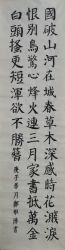 國破山河在城春草木深感時花濺淚
恨別鳥驚心烽火連三月家書抵萬金
白頭搔更短渾欲不勝簪
庚子 月 書